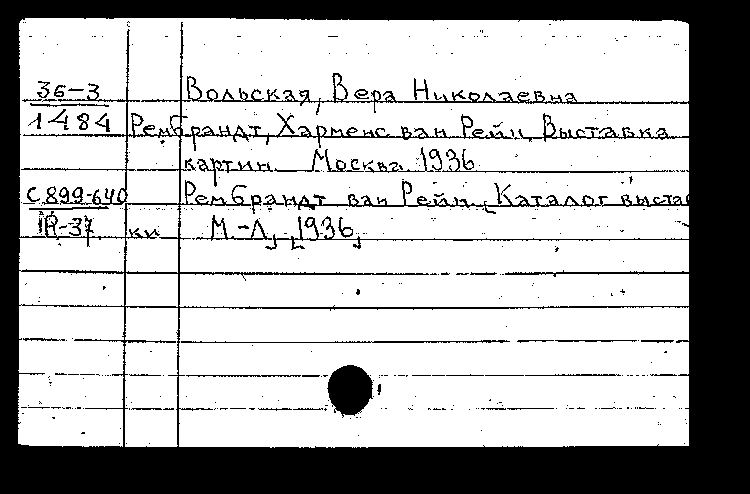 36-3 Вольская, Вера Николаевна
1484 Рембрандт, Харменс ван Рейн. Выставка
картин. Москва. 1936
С.899-640 Рембрандт ван Рейн. [Каталог выстав
ки М.-Л.], [1936]